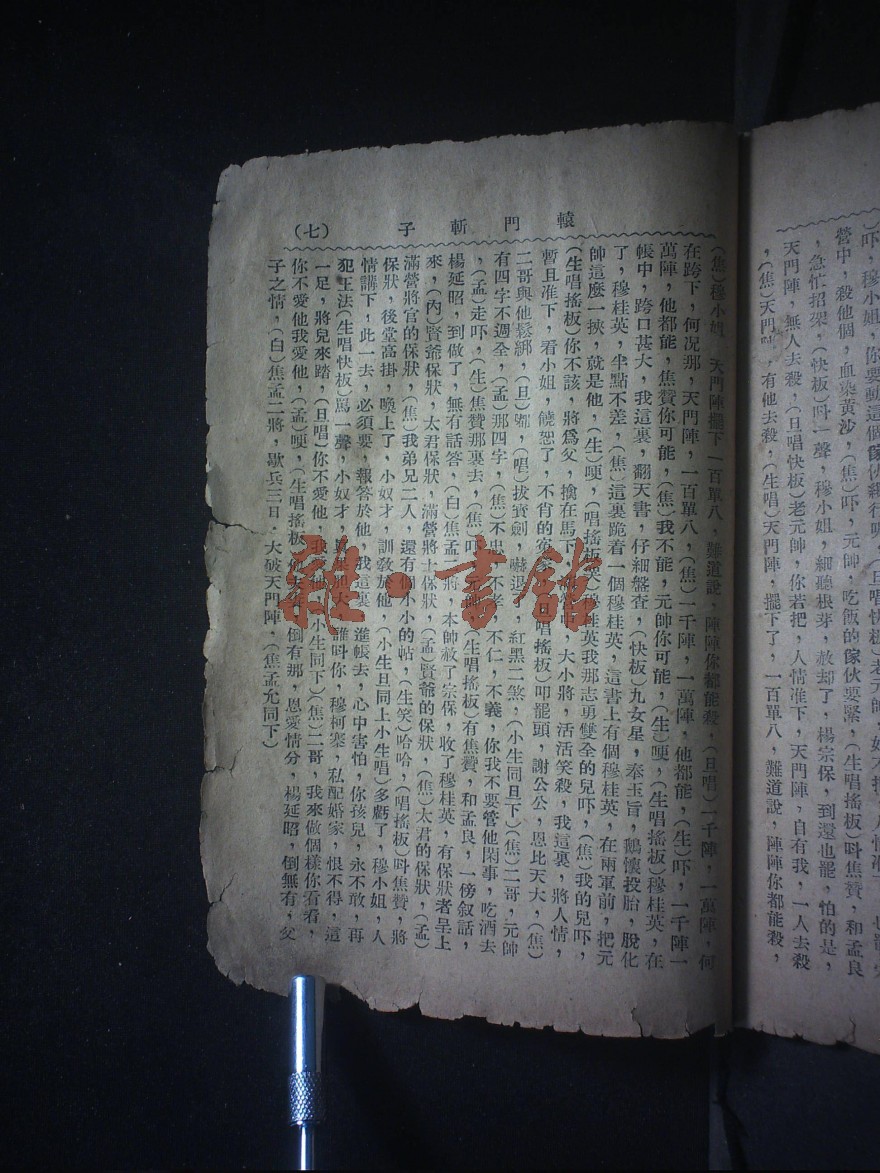 吓，穆小姐，你要動這個傢伙纔行呢，(旦唱快板)老元帥，
營中，殺他個，血染黃沙，(焦)吓，元帥，吃飯的傢伙要緊，(生唱搖板)呌焦贊，和孟良
，急忙招架，(快板)呌一聲，穆小姐，細聽根芽，赦却了，楊宗保，到還也罷，怕的是，
天門陣，無人去殺，(旦唱快板)老元帥，你若把，人情准下，天門陣，自有我，一人去殺
，(焦)天門陣，有他去殺，(生唱)天門陣，擺下了，一百單八，難道說，陣陣你都能殺，
轅門斬子 (七)
(焦)穆小姐，天門陣擺下一百單八，難道說，陣陣你都能殺，(旦唱)一千陣，一萬陣，何
在跨下，何况那，天門陣，一百單八，(焦)一千陣，一萬陣，他都能，(生)吓，一千陣一
萬陣，他都能，焦贊你可能，(焦)我不能，元帥你可能，(生)哽，(生唱搖板)穆桂英，在
帳中，跨口甚大，我這裏，翻天書，仔細盤查，(快板)九女星，奉玉旨，鵝懷投胎，脫化
了，穆桂英，半點不差，(焦)這裏跪着一個穆桂英，這書上有個穆桂英，在兩軍前，把元
帥這麽一挾，就是他，(生)哽，(唱搖板)穆桂英我那志勇雙全的兒吓，(焦)我的兒吓，
(生唱搖板)你不該，將爲父，擒在馬下，滿營中，大小將，活活笑殺，我這裏，將人情，
暫且准下，看小姐，饒恕了，不肖的寃家，(旦唱搖板)叩罷頭，謝公公，恩比天大，(焦)
二哥與他鬆綁，(旦)哪，(唱)拔寶劍，嚇退了，紅黑二煞，(小生同旦下)(焦)二哥，元帥
有四字不週全，(孟)那四字，(焦)不忠，不孝，不仁，不義，你我不要管他閑事，吃酒去
，(孟)走吓，(生)焦贊那裏去，(焦)吓，元帥，(生唱搖板)有焦贊，和孟良，一傍叙話，
楊延昭，到做了，無有話答，(白)焦孟二將，本帥赦了宗保，收了穆桂英，有保狀者呈上
來，(內)賢爺保狀，太君保狀，滿營將士保狀，(孟)賢爺的保狀，(焦)太君的保狀，(孟)
滿營將官的保狀，(焦)我弟兄二人，還有個小小的帖，(生笑)哈哈，(唱搖板)呌焦贊，將
保狀，後堂高掛，喚上了，小奴才，訓敎於他，(小生旦同上小生唱)多虧了，穆小姐，人
情講下，此一去，必須要，報答於他，我這裏，進帳去，心中害怕，你孩兒，永不敢，再
犯王法(生唱快板)罵一聲，小奴才，眞果胆大，誰呌你，穆柯寨，私配婚家，恨不得，這
一足，將兒來踏，(旦唱)你不愛他，我愛他，(小生同下)(焦)二哥，我來做個樣你看看，
你不愛他我愛他，(孟)哽，(生唱搖板)他夫妻，倒有那，恩愛情分，楊延昭，倒無有，父
子之情，(白)焦孟二將，歇兵三日，大破天門陣，(焦孟允同下)
雜·書館